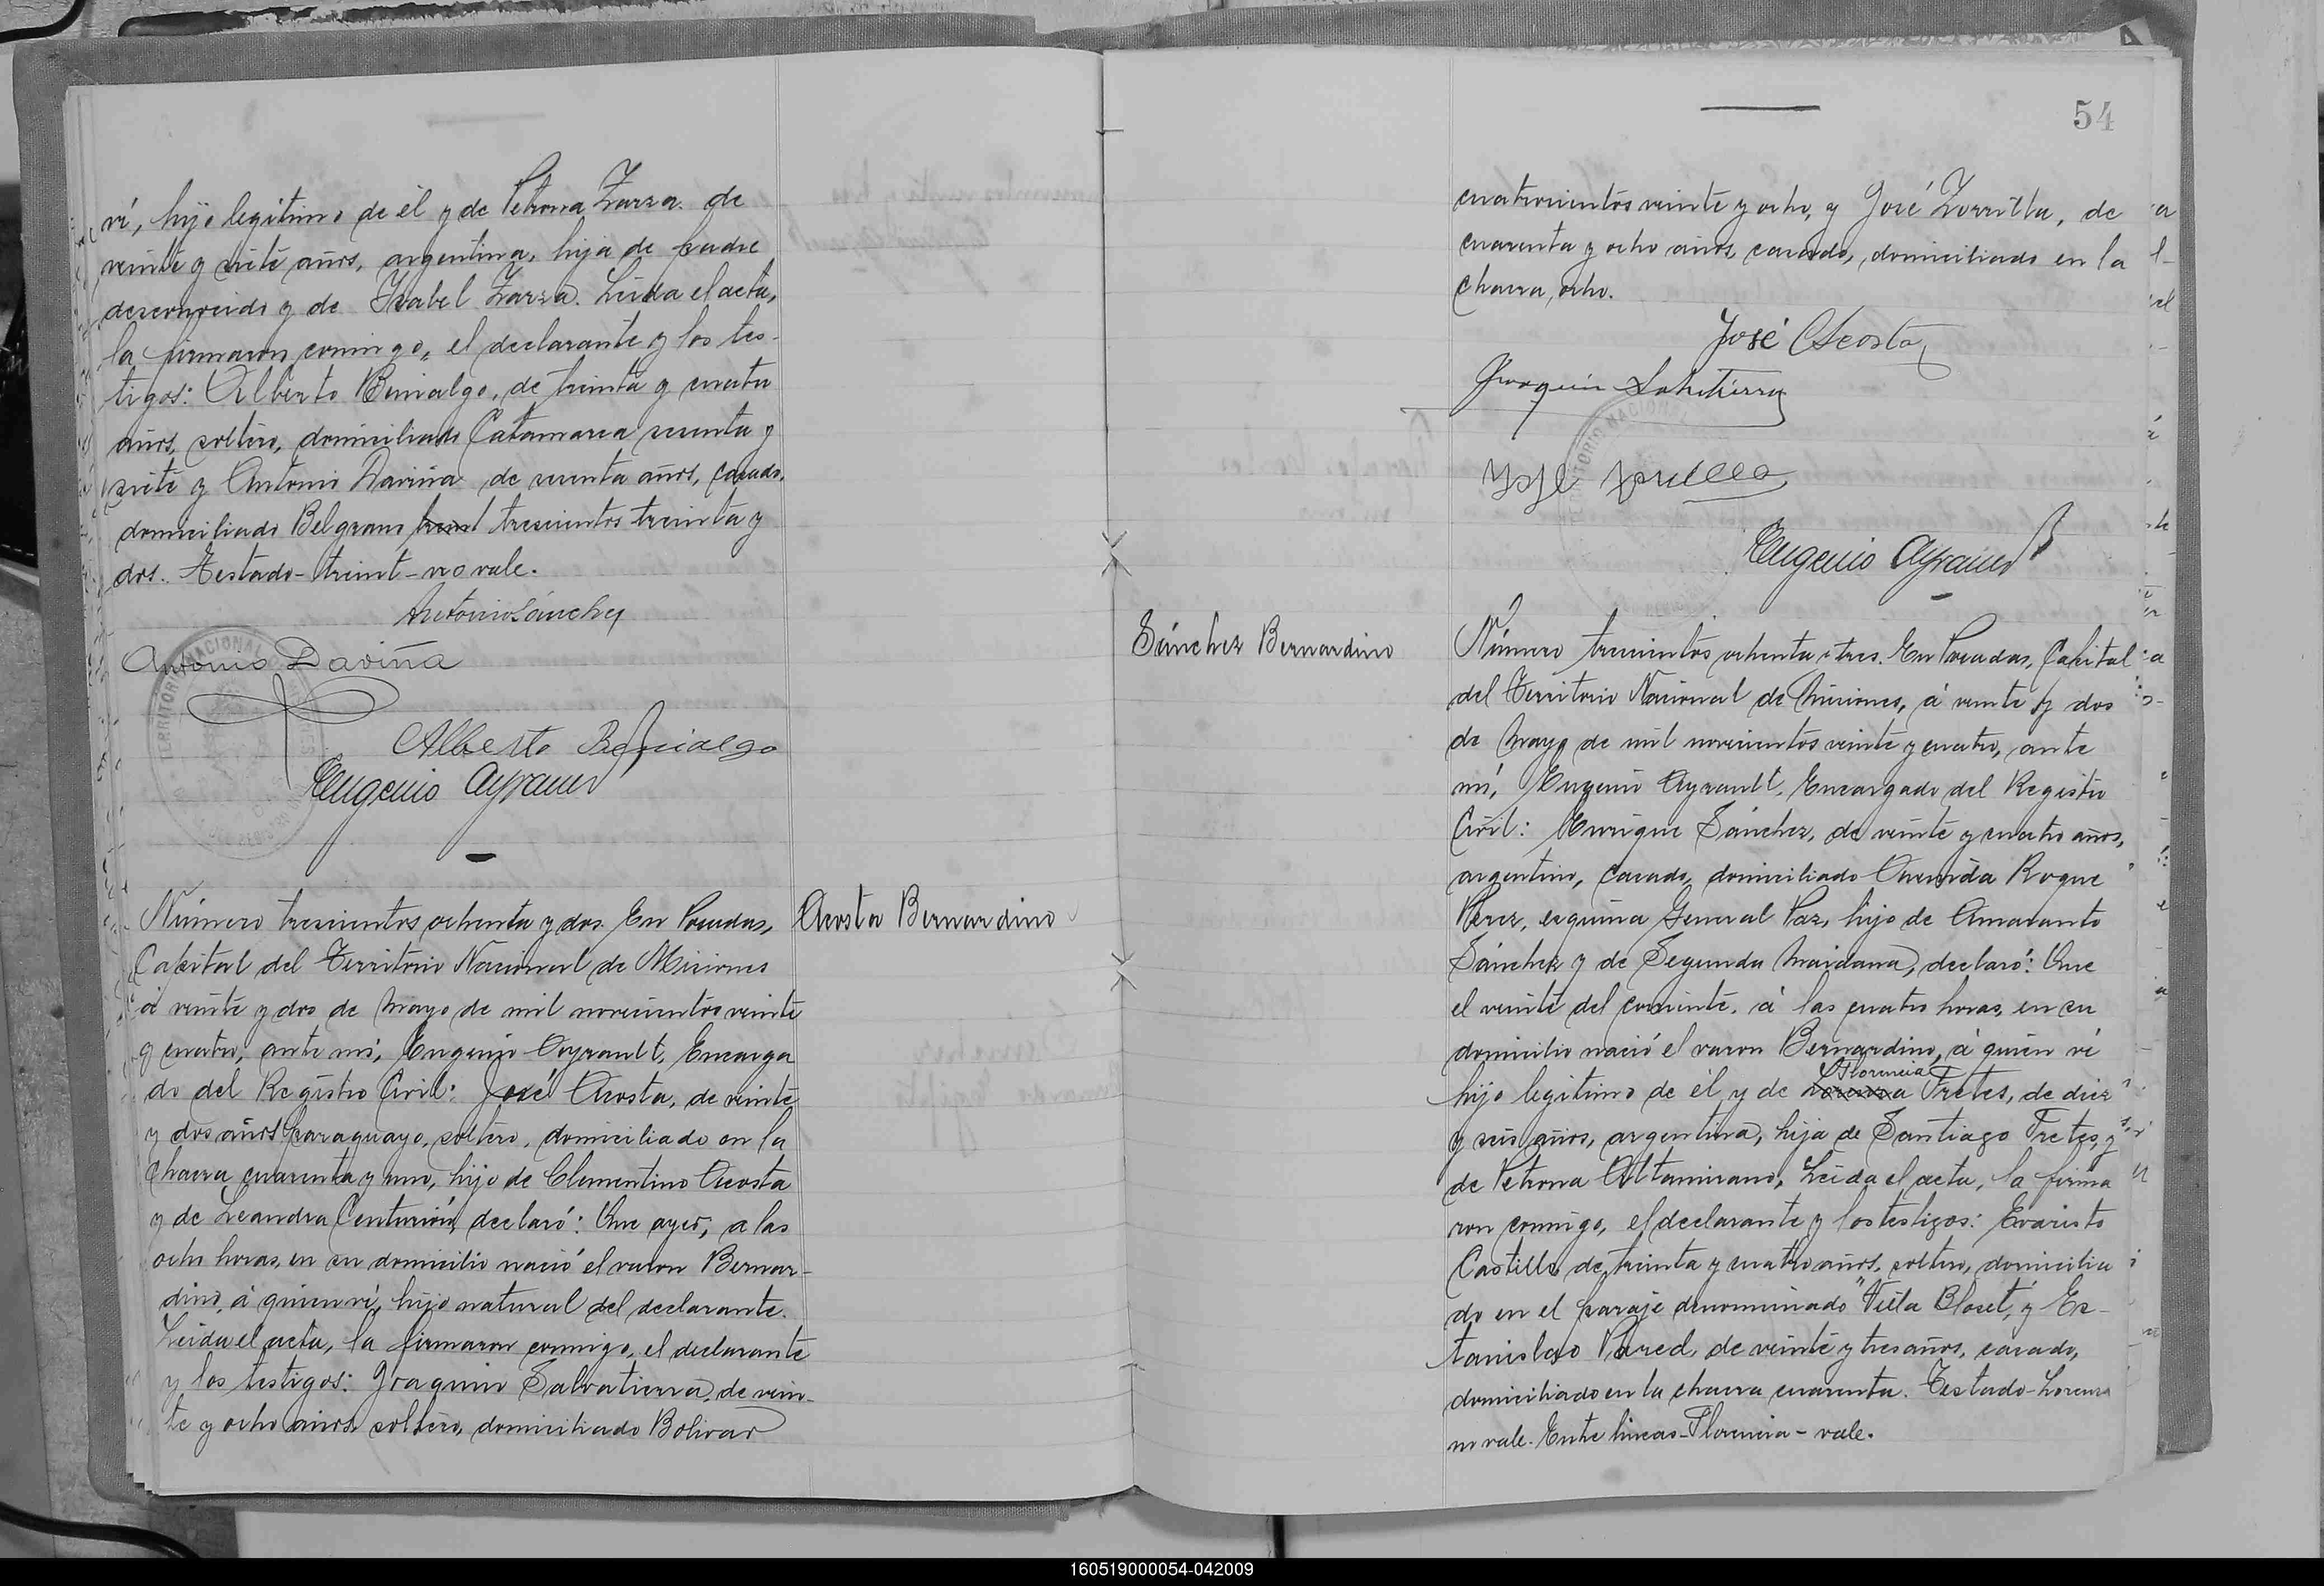 ví, hijo legítimo de él y de Petrona Zarza de
veinte y siete años, argentina, hija de padre
desconocido y de Isabel Zarza. Leida el acta,
la firmaron conmigo, el declarante y los tes-
tigos: Alberto Benialgo, de treinta y cuatro
años, soltero, domiciliado Catamarca sesenta y
siete y Antonio Daviña de sesenta años, casado,
domiciliado Belgrano treint trescientos treinta y
dos. Testado-treint-no vale.
Antonio Sánchez
Antonio Daviña
Alberto Benialgo
Eugenio Ayrault
Número trescientos ochenta y dos. En Posadas,
Acosta Bernardino
Capital del Territorio Nacional de Misiones
á veinte y dos de Mayo de mil novecientos veinte
y cuatro, ante mí, Eugenio Ayrault, Encarga
do del Registro Civil: José Acosta, de veinte
y dos años paraguayo, soltero, domiciliado en la
Chacra cuarenta y uno, hijo de Clementino Acosta
y de Leandra Centurión, declaró: Que ayer, a las
ocho horas, en su domicilio nació el varon Bernar-
dino, á quien ví, hijo natural del declarante.
Leida el acta, la firmaron conmigo, el declarante
y los testigos: Joaquin Salvatierra, de vein-
te y ocho años, soltero, domiciliado Bolivar
54
cuatrocientos veinte y ocho, y José Zorrilla, de
cuarenta y ocho años, casado, domiciliado en la
Chacra, ocho.
José Acosta
Joaquin Salvatierra
Eugenio Ayrault
Sánchez Bernardino
Número trescientos ochenta y tres. En Posadas, Capital
del Territorio Nacional de Misiones, á veinte y dos
de Mayo de mil novecientos veinte y cuatro, ante
mí, Eugenio Ayrault, Encargado del Registro
Civil: Enrique Sánchez, de veinte y cuatro años,
argentino, casado, domiciliado Avenida Roque
Perez, esquina General Paz, hijo de Amaranto
Sánchez y de Segunda Maidana, declaró: Que
el veinte del corriente, á las cuatro horas, en su
domicilio nació el varon Bernardino, á quien ví
Florencia
hijo legítimo de él y de Lorenza Fretes, de diez
y seis años, argentina, hija de Santiago Fretes, y
de Petrona Altamirano, Leida el acta, la firma
ron conmigo, el declarante y los testigos: Evaristo
Castillo de treinta y cuatro años, soltero, domicilia
do en el paraje denominado "Villa Blosset", y Es-
tanislao Pared, de veinte y tres años, casado,
domiciliado en la chacra cuarenta. Testado-Lorenza
no vale. Entre lineas-Florencia-vale.
160519000054-042009